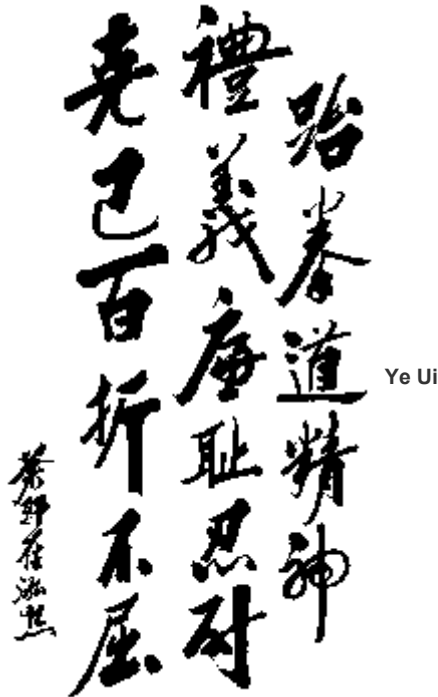 跆拳道精神
禮義廉耻忍耐
克己百折不屈
Ye Ui